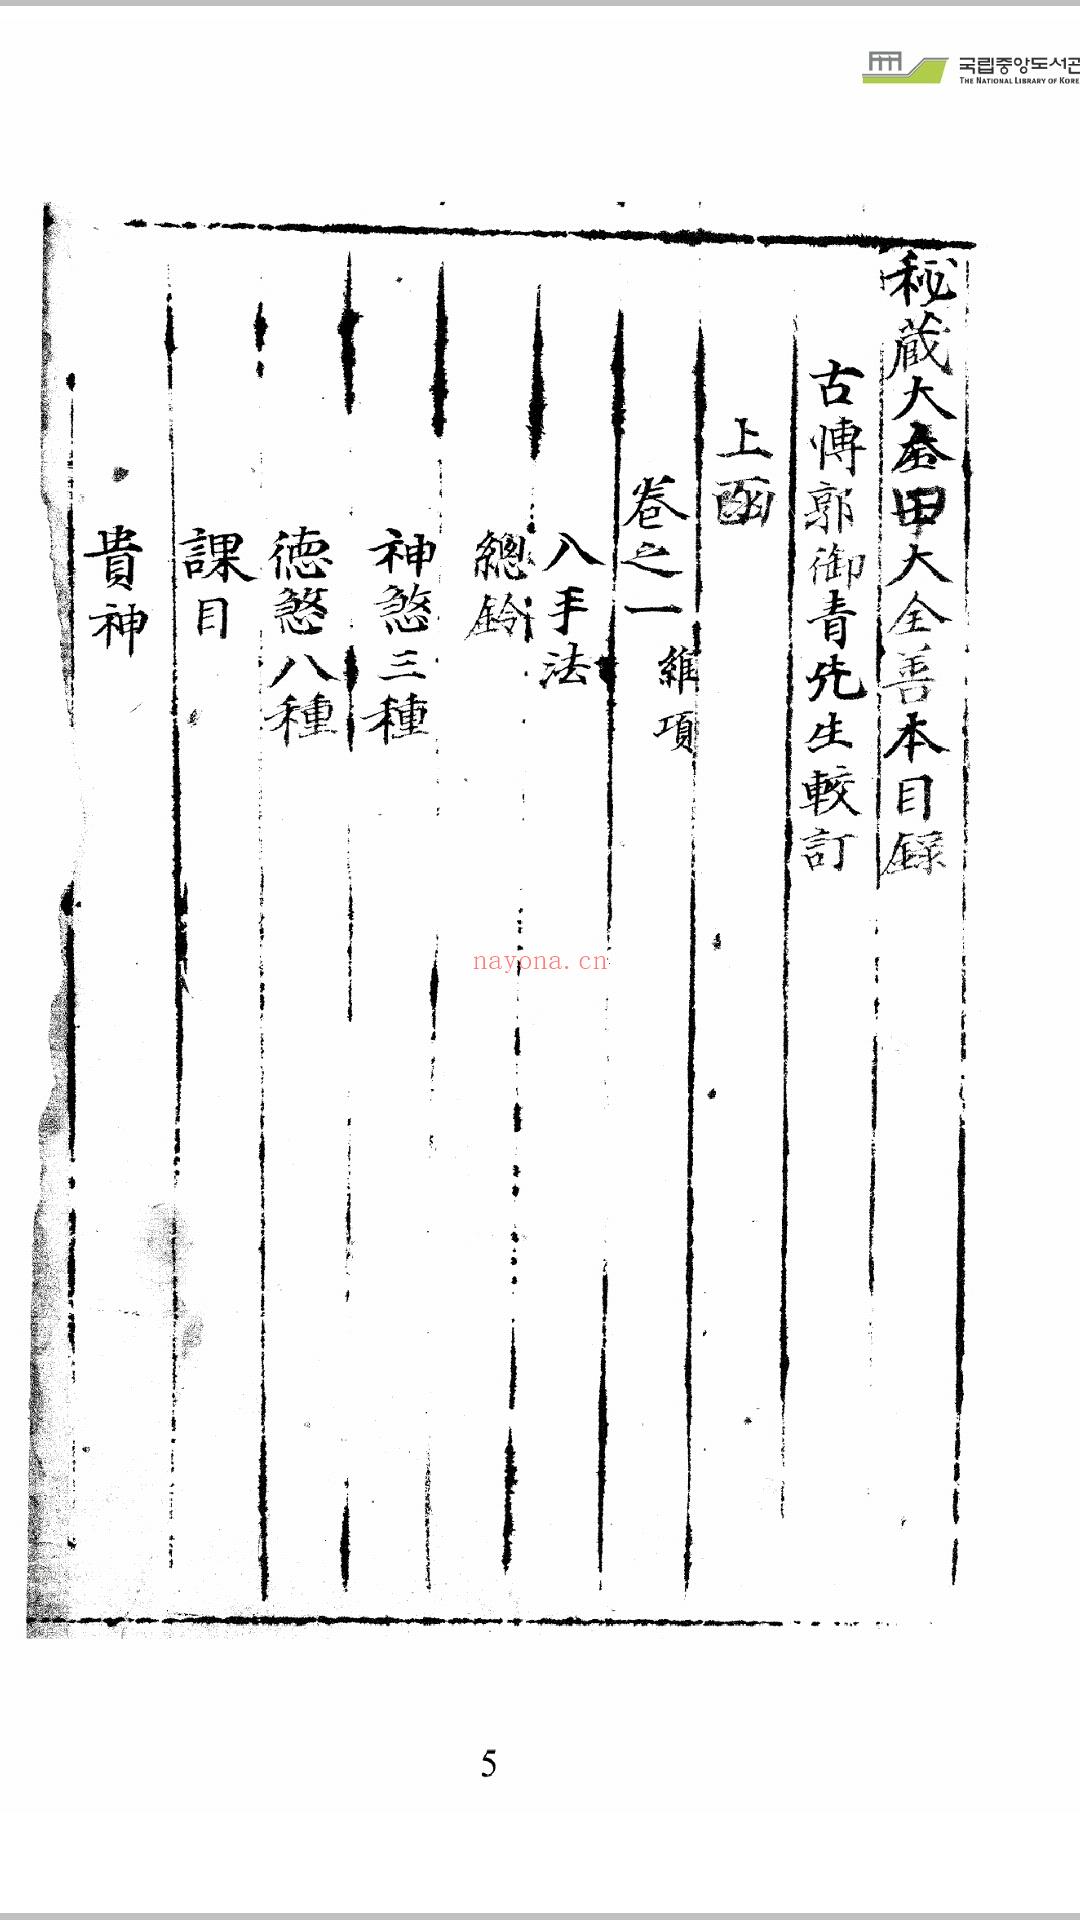 국립중앙도서관
THE NATIONAL LIBRARY OF KORE
秘蔵大金甲大全善本目録
古愽郭御青先生較訂
上函
卷之一 維項
八手法
總鈴
神煞三種
德煞八種
課目
貴神
nayona.cn
5